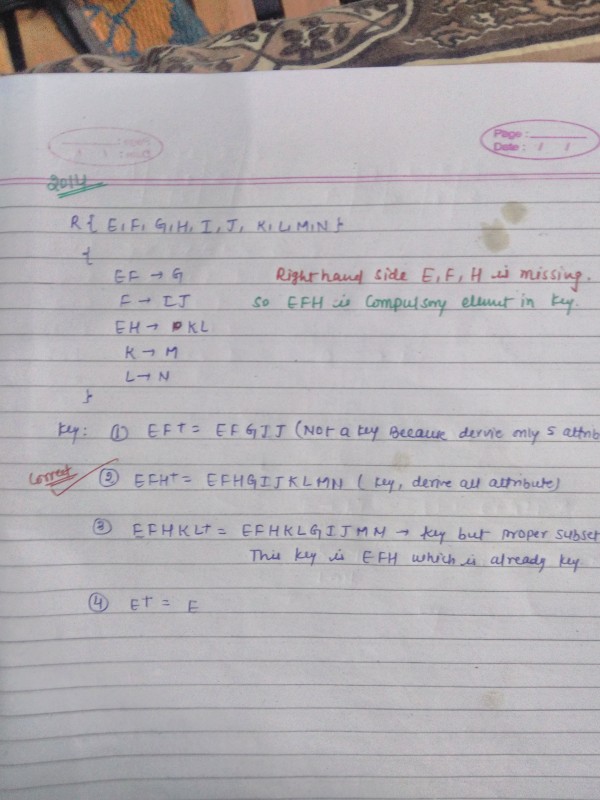 Page :
Date : / /
2014
R { E, F, G, H, I, J, K, L, M, N }
{
EF → G Right hand side E, F, H is missing.
F → IJ So EFH is Compulsory elemnt in key.
EH → KL
K → M
L → N
}
Key: ① EF+ = EFGIJ (Not a key Because dervie only 5 attrib
Correct ② EFH+ = EFHGIJKLMN ( key, derive all attribute)
③ EFHKL+ = EFHKLGIJMN → key but proper subset
This key is EFH which is already key
④ E+ = E